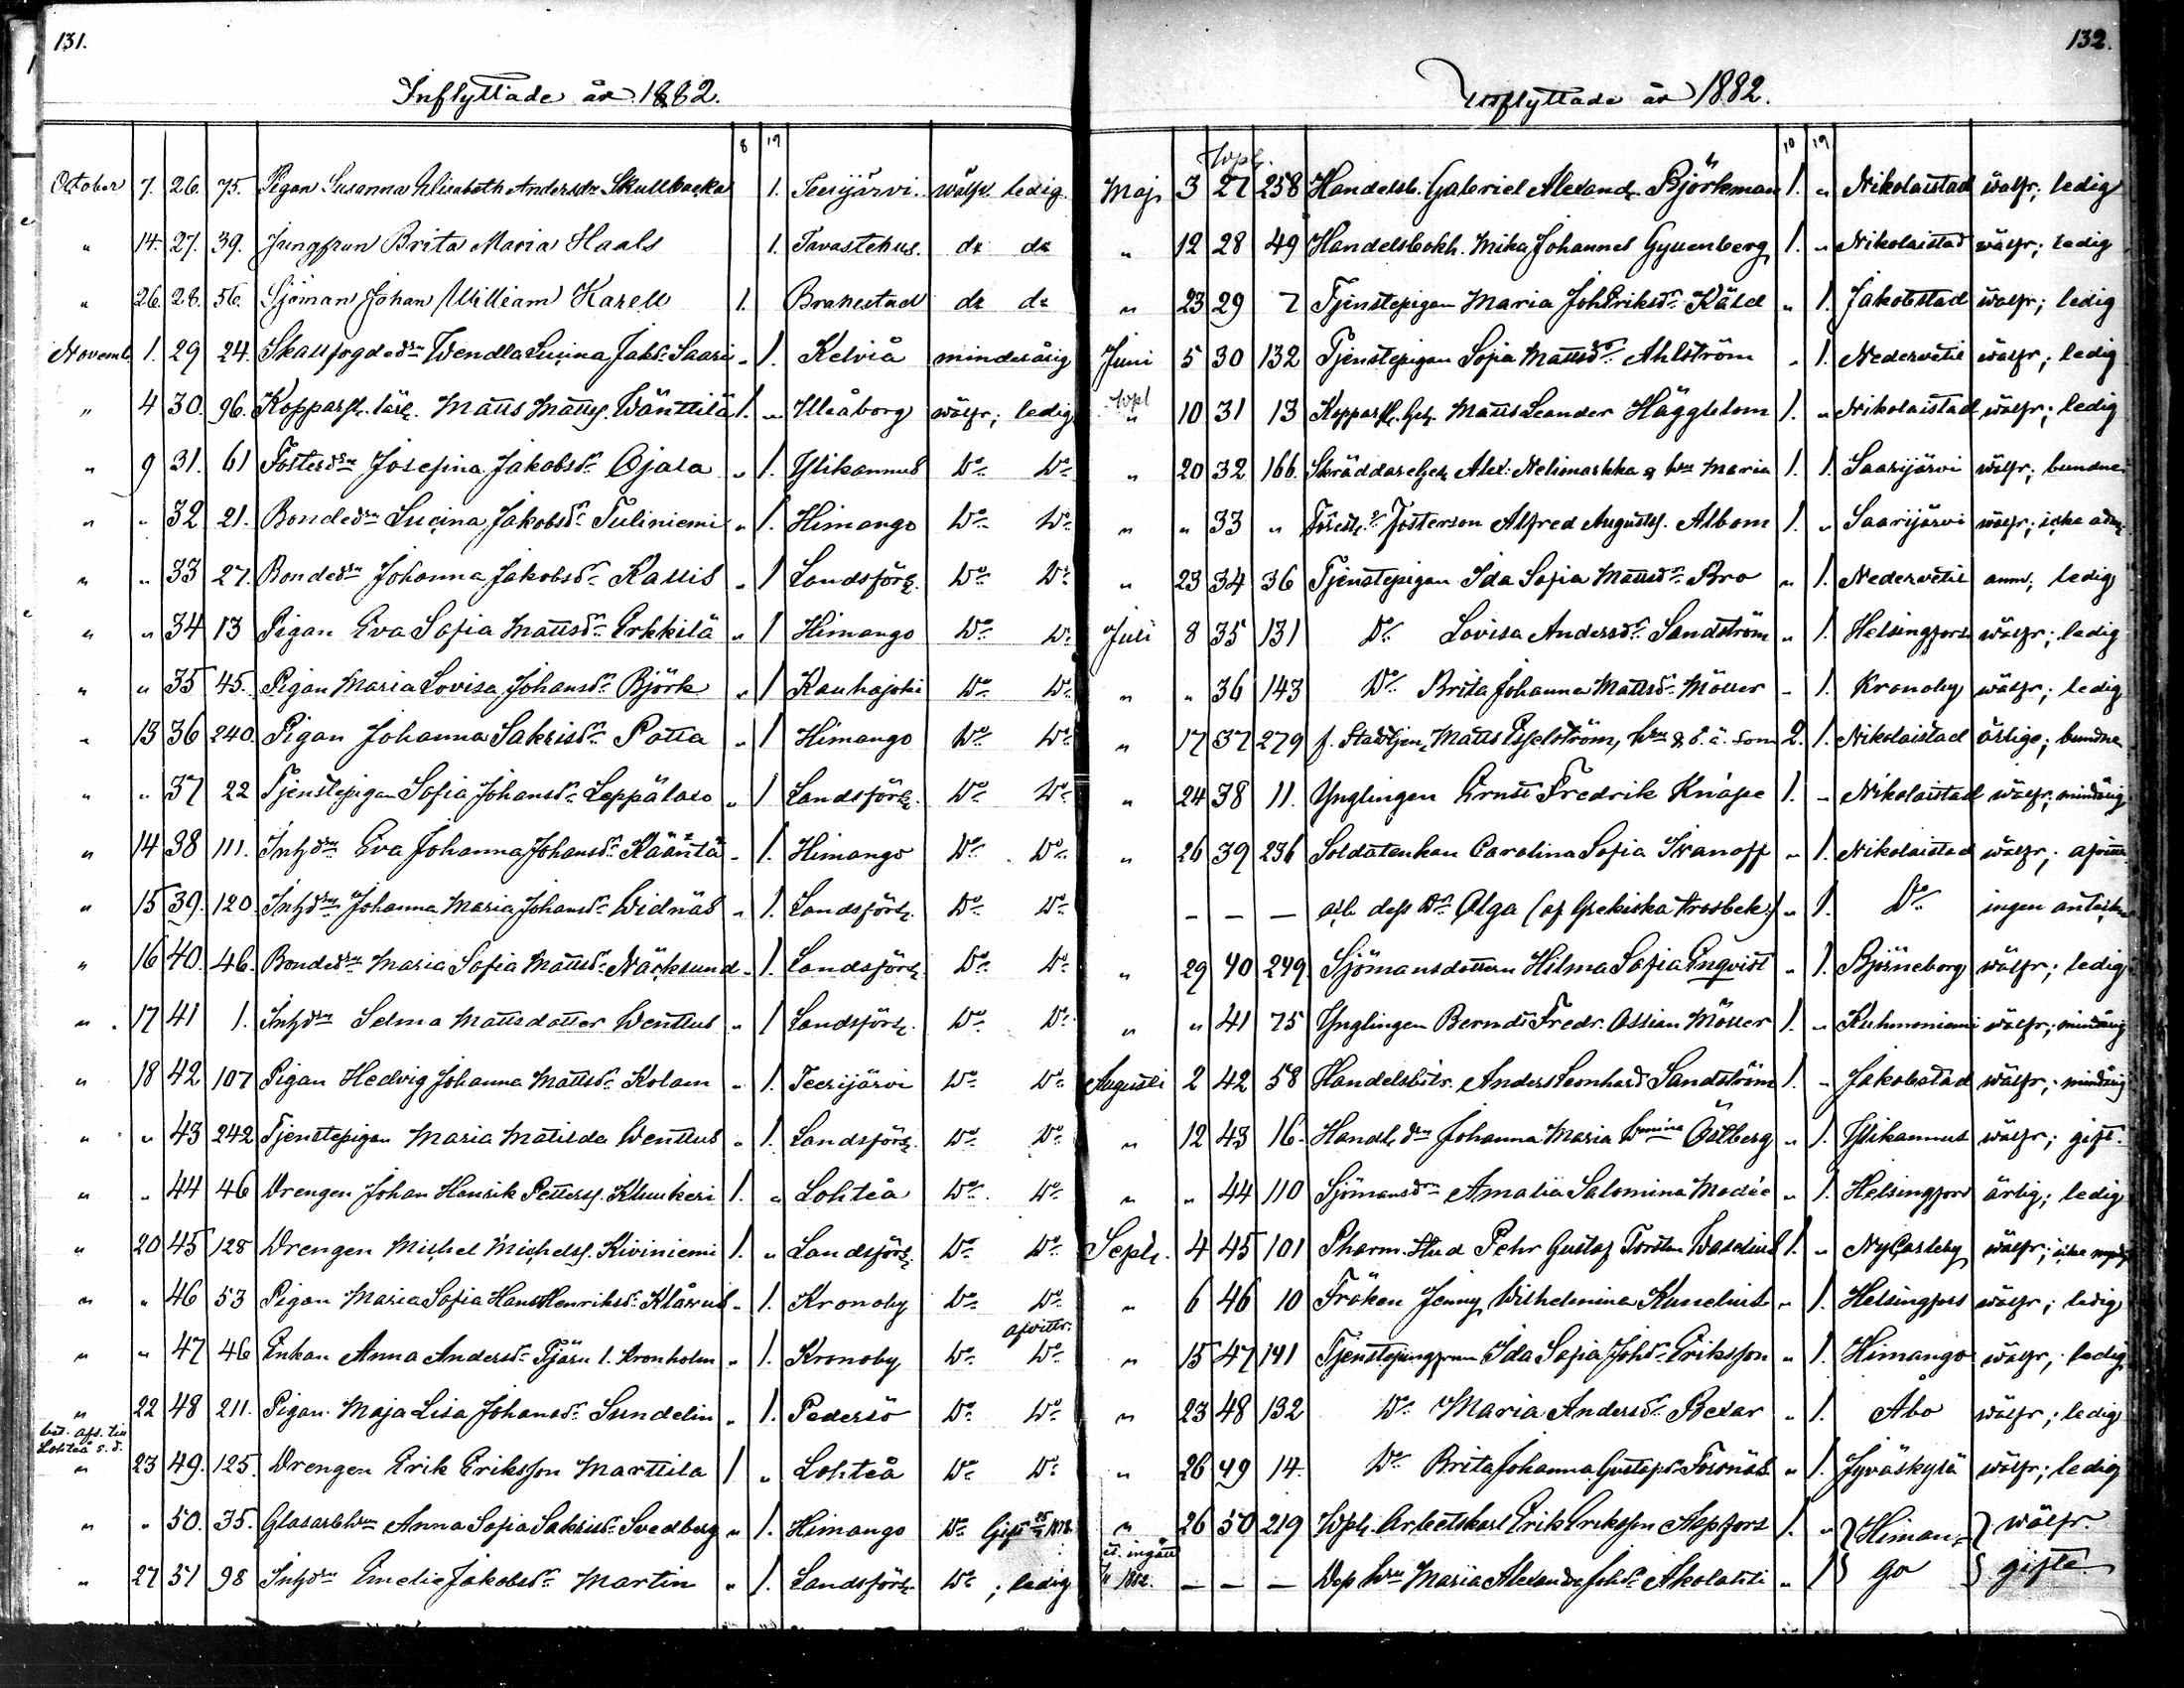 131.
Inflyttade år 1882.
8 19
October 7. 26. 75. Pigan Susanna Elisabeth Andersdr Skullbacka 1. Teerijärvi. wälfr. ledig.
" 14. 27. 39. Jungfrun Brita Maria Haals 1. Tavastehus. do do
" 26. 28. 56. Sjöman Johan William Karell 1. Brahestad do do
Novemb. 1. 29 24. Skallfogdedrn Wendla Lucina Jaksdr Saari " 1. Kelviå minderårig
" 4 30. 96. Matts Mattss. Wänttilä 1. " Uleåborg wälfr; ledig
" 9 31. 61 Fosterdrn Josefina Jakobsdr Ojala " 1. Ylikannus Do Do
" " 32 21. Bondedrn Lucina Jakobsdr Tuliniemi " 1. Himango Do Do
" " 33 27. Bondedrn Johanna Jakobsdr Kallis " 1 Landsförs. Do Do
" " 34 13 Pigan Eva Sofia Mattsdr Erkkilä " 1 Himango Do Do
" " 35 45. Pigan Maria Lovisa Johansdr Björk " 1 Kauhajoki Do Do
" 13 36 240. Pigan Johanna Sakrisdr Potta " 1 Himango Do Do
" " 37 22 Tjenstepigan Sofia Johansdr Leppälaso " 1 Landsförs. Do Do
" 14 38 111. Inhdrn Eva Johanna Johansdr Kääntä " 1. Himango Do Do
" 15 39. 120. Inhdrn Johanna Maria Johansdr Widnäs " 1. Landsförs. Do Do
" 16 40. 46. Bondedrn Maria Sofia Mattsdr Näcksund " 1. Landsförs. Do Do
" 17 41 1. Inhdrn Selma Mattsdotter Wentus " 1 Landsförs. Do Do
" 18 42 107 Pigan Hedvig Johanna Mattsdr Kolam " 1. Teerijärvi Do Do
" " 43 242 Tjenstepigan Maria Matilda Wentus " 1. Landsförs. Do Do
" " 44 46 Drengen Johan Henrik Petterss. Klunkeri 1. " Lohteå Do Do
" 20 45 128 Drengen Michel Michelss. Kiviniemi 1. " Landsförs. Do Do
" " 46 53 Pigan Maria Sofia Hans Henriksdr Klårus " 1. Kronoby Do Do
" " 47 46 Enkan Anna Andersdr Tjäru l. Kronholm " 1. Kronoby Do afvittr. Do
" 22 48 211. Pigan Maja Lisa Johansdr Sundelin " 1. Pedersö Do Do
bet. afs. till Lohteå s. d.
" 23 49. 125. Drengen Erik Eriksson Marttila 1 " Lohteå Do Do
" " 50. 35. Anna Sofia Sakrisdr Svedberg " 1. Himango Do Gift 1878
" 27 51 98 Inhdrn Emelie Jakobsdr Martin " 1. Landsförs. Do ; ledig
132.
Utflyttade år 1882.
10 19
Wpl.
Maj 3 27 258 Handelsb. Gabriel Alexand. Björkman 1. " Nikolaistad wälfr; ledig
" 12 28 49 Handelsbokh. Mika Johannes Gyllenberg 1. " Nikolaistad wälfr; ledig
" 23 29 7 Tjenstepigan Maria Joh Eriksdr Käld " 1. Jakobstad wälfr; ledig
Juni 5 30 132 Tjenstepigan Sofia Mattsdr Ahlström " 1. Nedervetil wälfr; ledig
Wpl
" 10 31 13 Matts Leander Häggblom 1. " Nikolaistad wälfr; ledig
" 20 32 166. Skräddareges. Alex. Nelimarkka & Hu Maria 1. 1. Saarijärvi wälfr; bundne
" " 33 " Fosterson Alfred Augusts. Albom 1. " Saarijärvi wälfr; icke adm.
" 23 34 36 Tjenstepigan Ida Sofia Mattsdr Bro " 1. Nedervetil anm; ledig
Juli 8 35 131 Do Lovisa Andersdr Sandström " 1. Helsingfors wälfr; ledig
" " 36 143 Do Brita Johanna Mattsdr Möller " 1. Kronoby wälfr; ledig
" 17 37 279 f. Stadstjen. Matts Esselström, Hu & o. ä. Son 2. 1. Nikolaistad ärlige; bundne
" 24 38 11. Ynglingen Ernst Fredrik Knape 1. " Nikolaistad wälfr; mindrårig
" 26 39 236 Soldatenkan Carolina Sofia Ivanoff " 1. Nikolaistad wälfr; afvittr.
— — — och dess Dr Olga (af Grekiska trosbek.) " 1. Do ingen anteckn.
" 29 40 249 Sjömansdottern Hilma Sofia Enqvist " 1. Björneborg wälfr; ledig
" " 41 75 Ynglingen Berndt Fredr. Ossian Möller 1. " Kuhmoniemi wälfr; mindrårig
Augusti 2 42 58 Handelsbitr. Anders Leonhard Sandström 1. " Jakobstad wälfr; mindrårig
" 12 43 16. Johanna Maria Wmina Östberg " 1. Ylikannus wälfr; gift.
" " 44 110 Sjömansdrn Amalia Salomina Modée " 1. Helsingfors ärlig; ledig
Septr. 4 45 101 Pharm. Stud Pehr Gustaf Torsten Waselius 1. " NyCarleby wälfr; icke myndig
" 6 46 10 Fröken Jenny Wilhelmina Kunelius " 1. Helsingfors wälfr; ledig
" 15 47 141 Tjenstejungfrun Ida Sofia Johdr Eriksson " 1. Himango wälfr; ledig
" 23 48 132 Do Maria Andersdr Bexar " 1. Åbo wälfr; ledig
" 26 49 14. Do Brita Johanna Gustafsdr Forsnäs " 1. Jyväskylä wälfr; ledig
" 26 50 219 Wpl. Arbetskarl Erik Eriksson Aspfors 1. " Himan= wälfr.
ä. ingått 1882. — — — Dess Hu Maria Alexandra Johdr Akolahti " 1 go gifte